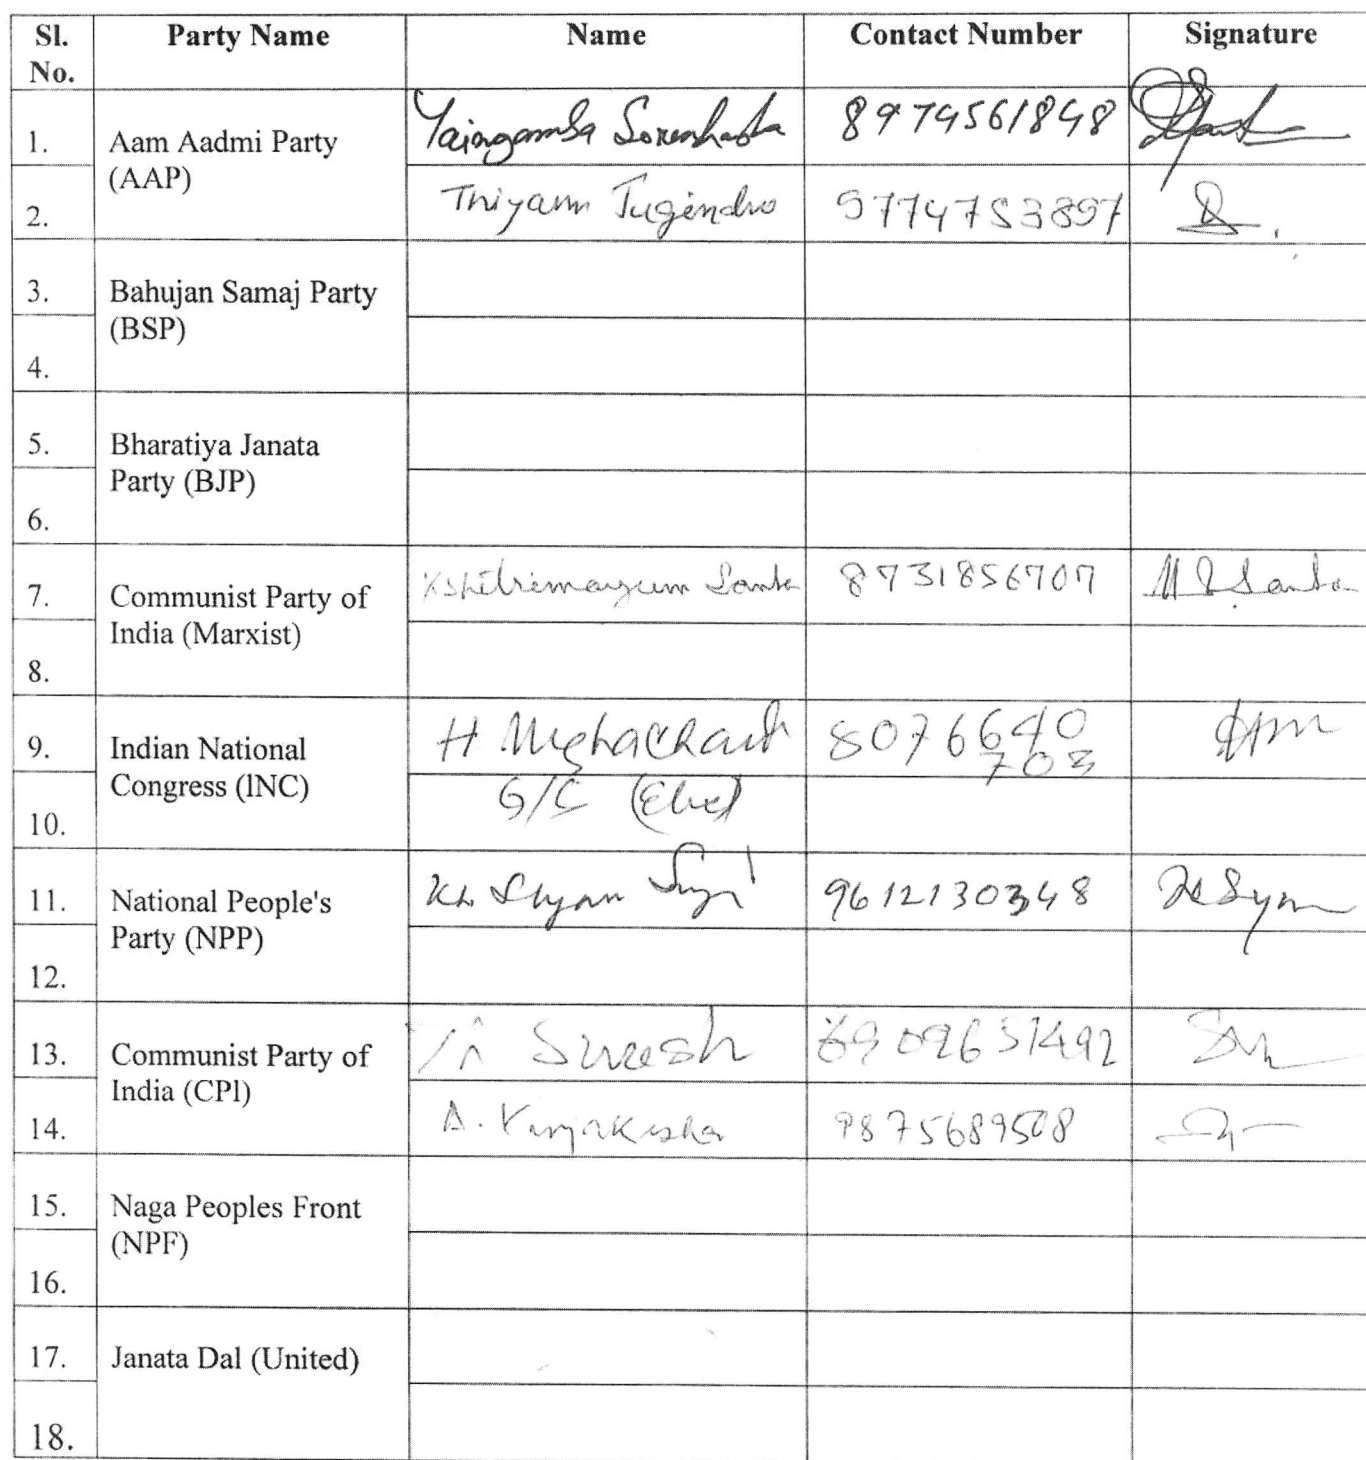 Sl. No. Party Name Name Contact Number Signature
1. Aam Aadmi Party (AAP) Yaingamba 8974561848
2. Thiyam Jugindro 9774753897
3. Bahujan Samaj Party (BSP)
4.
5. Bharatiya Janata Party (BJP)
6.
7. Communist Party of India (Marxist) Kshetrimayum Santa 8731856707 Santa
8.
9. Indian National Congress (INC) H Meghachandra 8076640703
10. G/S (Elec)
11. National People's Party (NPP) Kh Shyam 9612130348
12.
13. Communist Party of India (CPI) Suresh 6909651492
14. A. 9875689508
15. Naga Peoples Front (NPF)
16.
17. Janata Dal (United)
18.